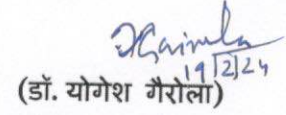 19/2/24
(डॉ. योगेश गैरोला)